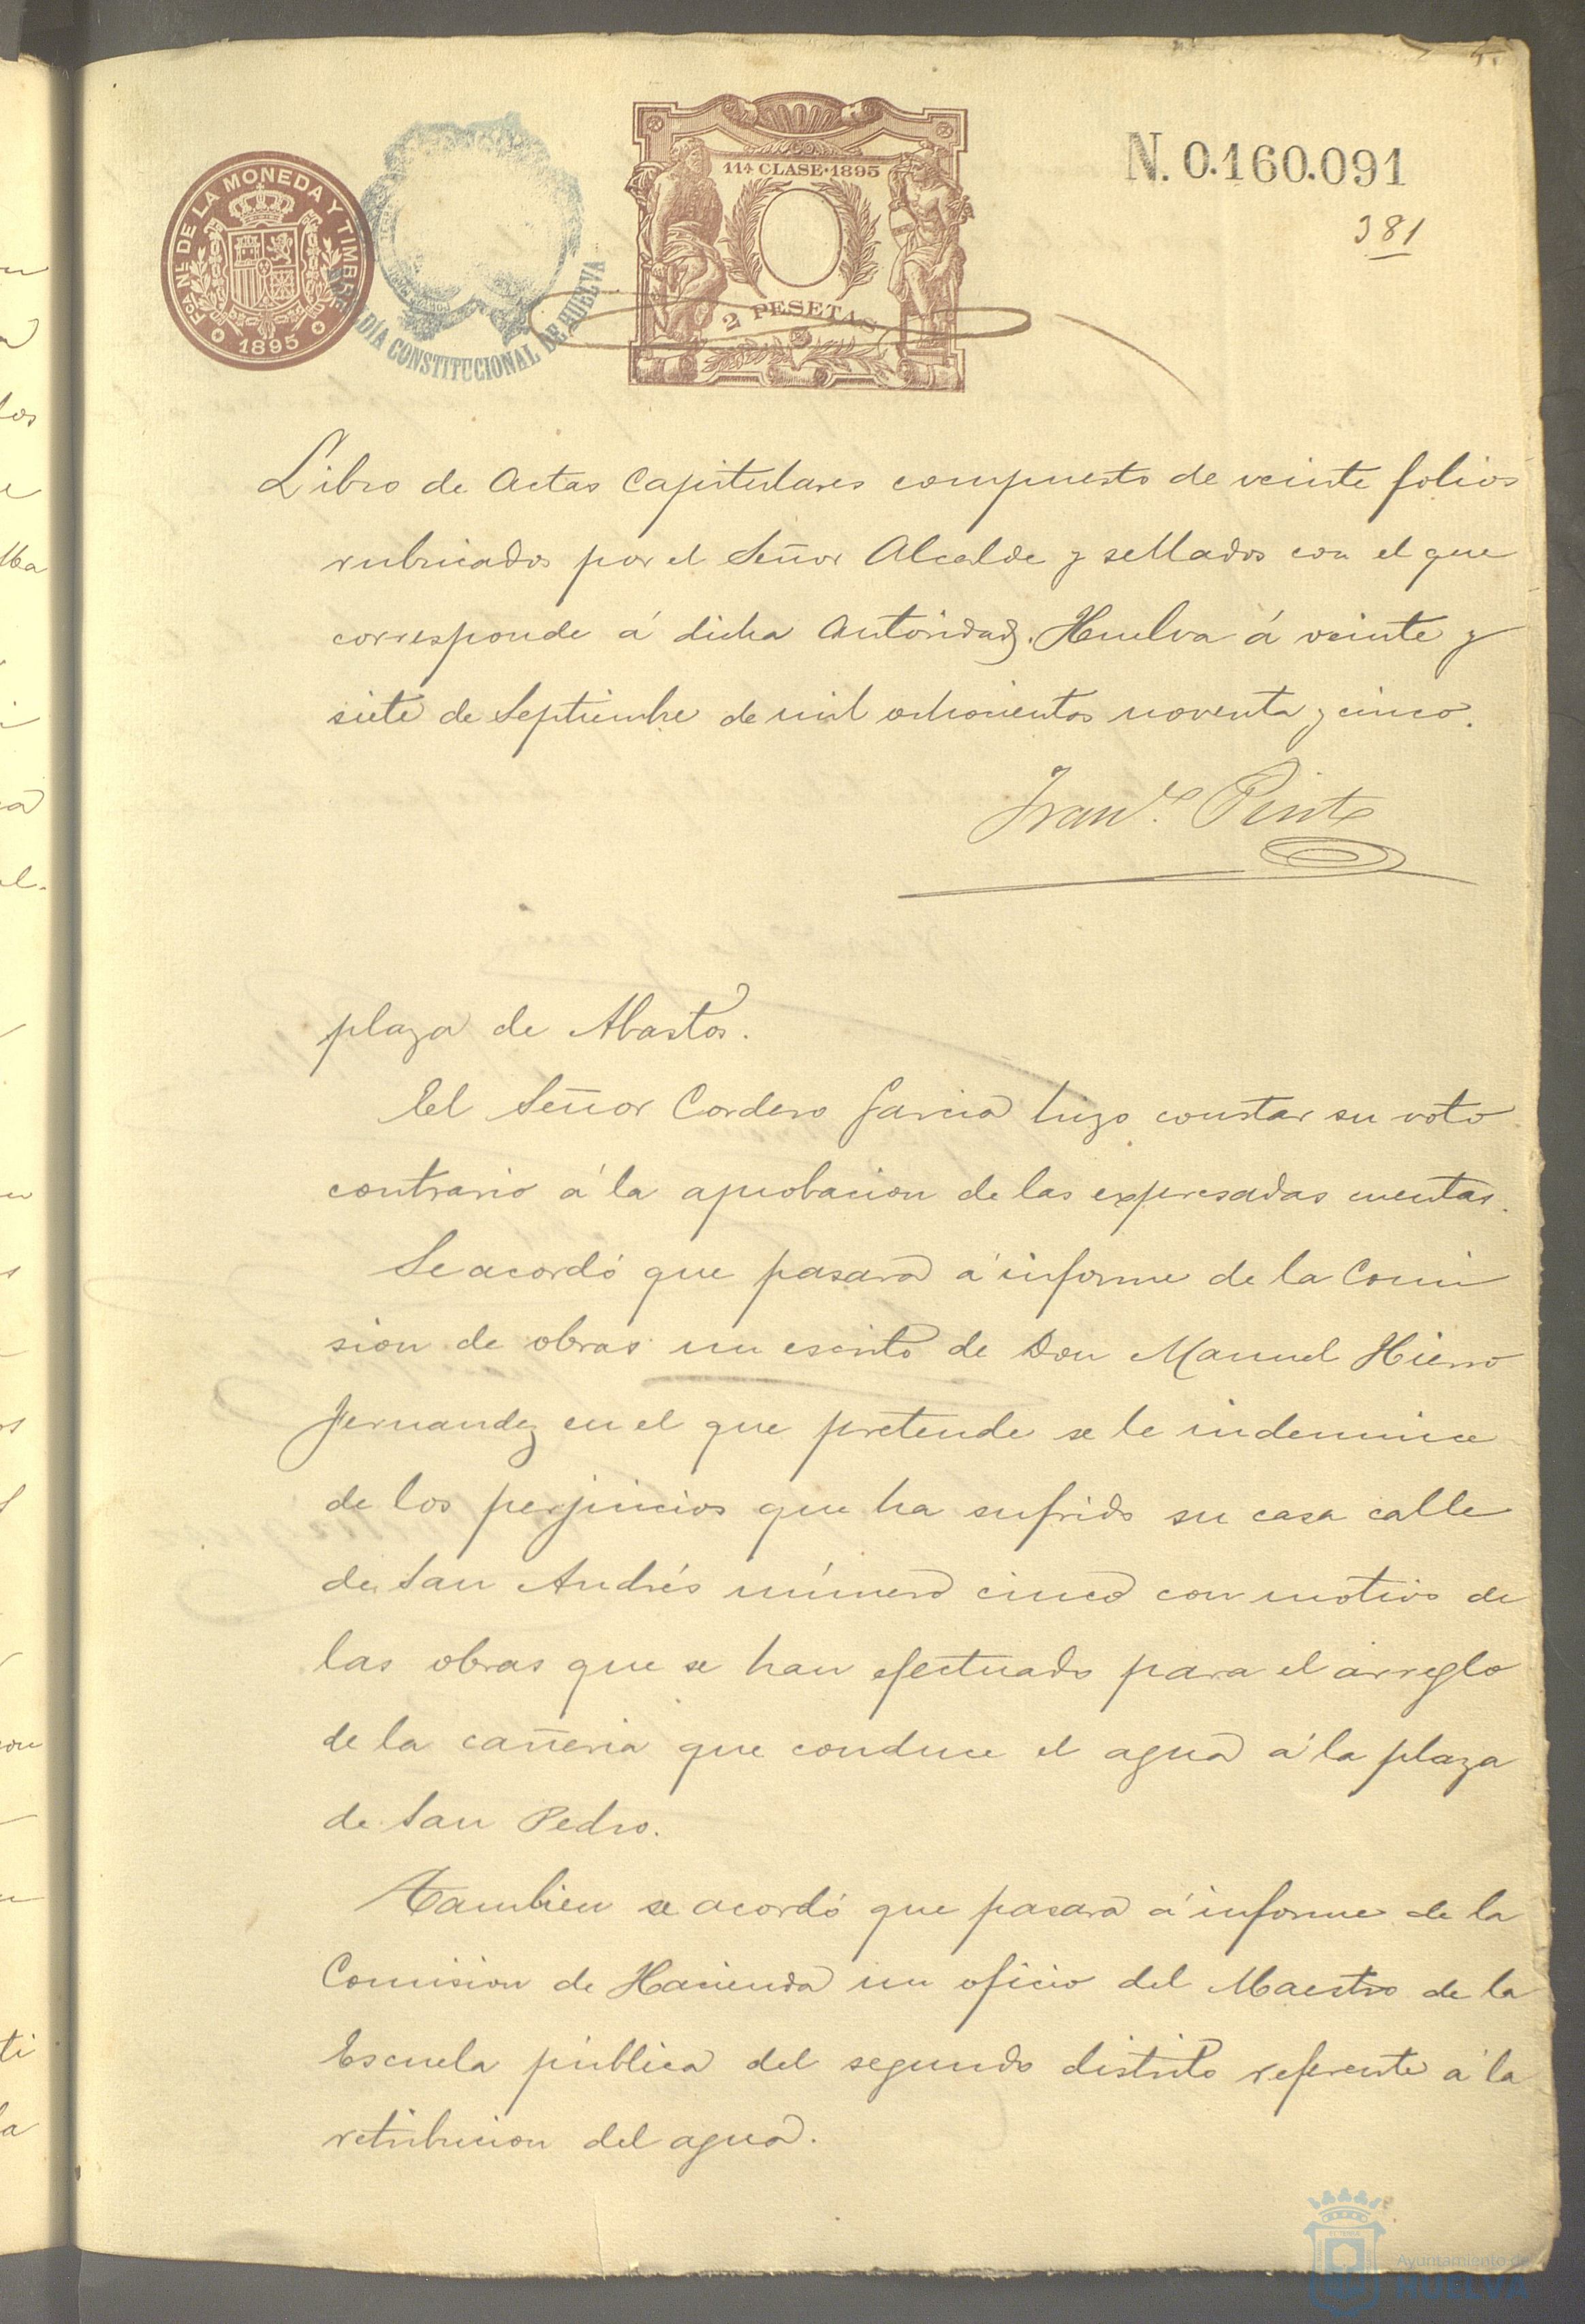 N. 0.160.091
381
FCA. NAL. DE LA MONEDA Y TIMBRE
1895
DÍA CONSTITUCIONAL DE HUELVA
11ª CLASE·1895
2 PESETAS
Libro de Actas Capitulares compuesto de veinte folios
rubricados por el Señor Alcalde y sellados con el que
corresponde á dicha Autoridad. Huelva á veinte y
siete de Septiembre de mil ochocientos noventa y cinco.
Fran.co Pinto
plaza de Abastos.
El Señor Cordero Garcia hizo constar su voto
contrario á la aprobacion de las expresadas cuentas.
Se acordó que pasara á informe de la Comi
sion de obras un escrito de Don Manuel Hierro
Fernandez en el que pretende se le indemnice
de los perjuicios que ha sufrido su casa calle
de San Andrés número cinco con motivo de
las obras que se han efectuado para el arreglo
de la cañeria que conduce el agua á la plaza
de San Pedro.
Tambien se acordó que pasara á informe de la
Comision de Hacienda un oficio del Maestro de la
Escuela pública del segundo distrito referente á la
retribucion del agua.
Ayuntamiento de
HUELVA